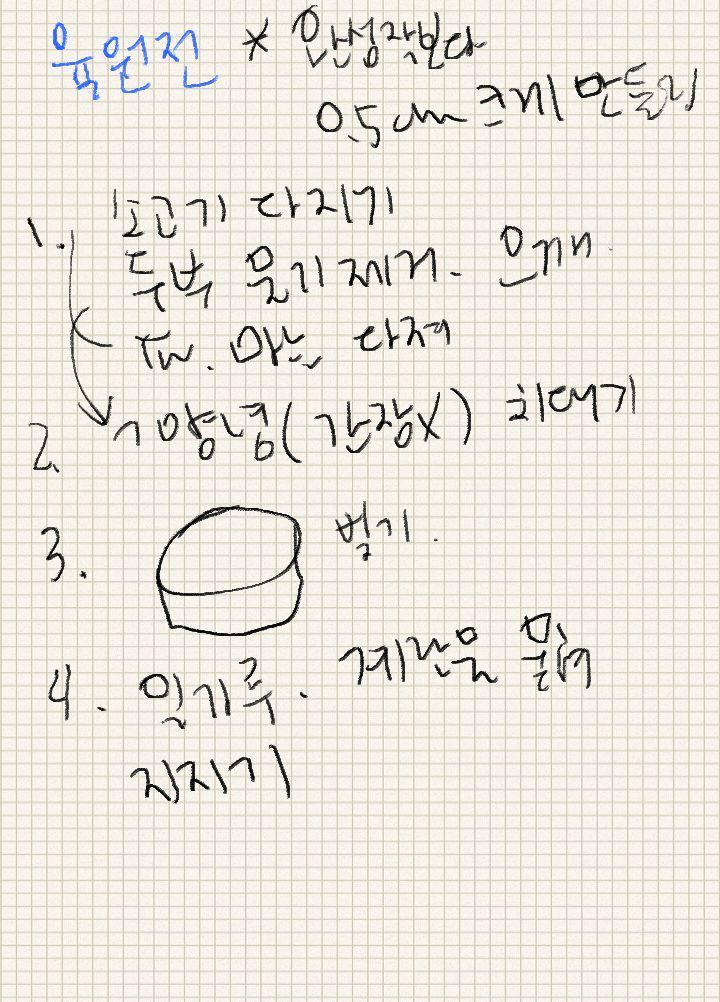 육원전 * 완성작보다
0.5cm 크게 만들기
1. 소고기 다지기
두부 물기제거. 으깨
파. 마늘 다져
2. 양념(간장X) 치대기
3. 빚기.
4. 밀가루. 계란물 묻혀
지지기